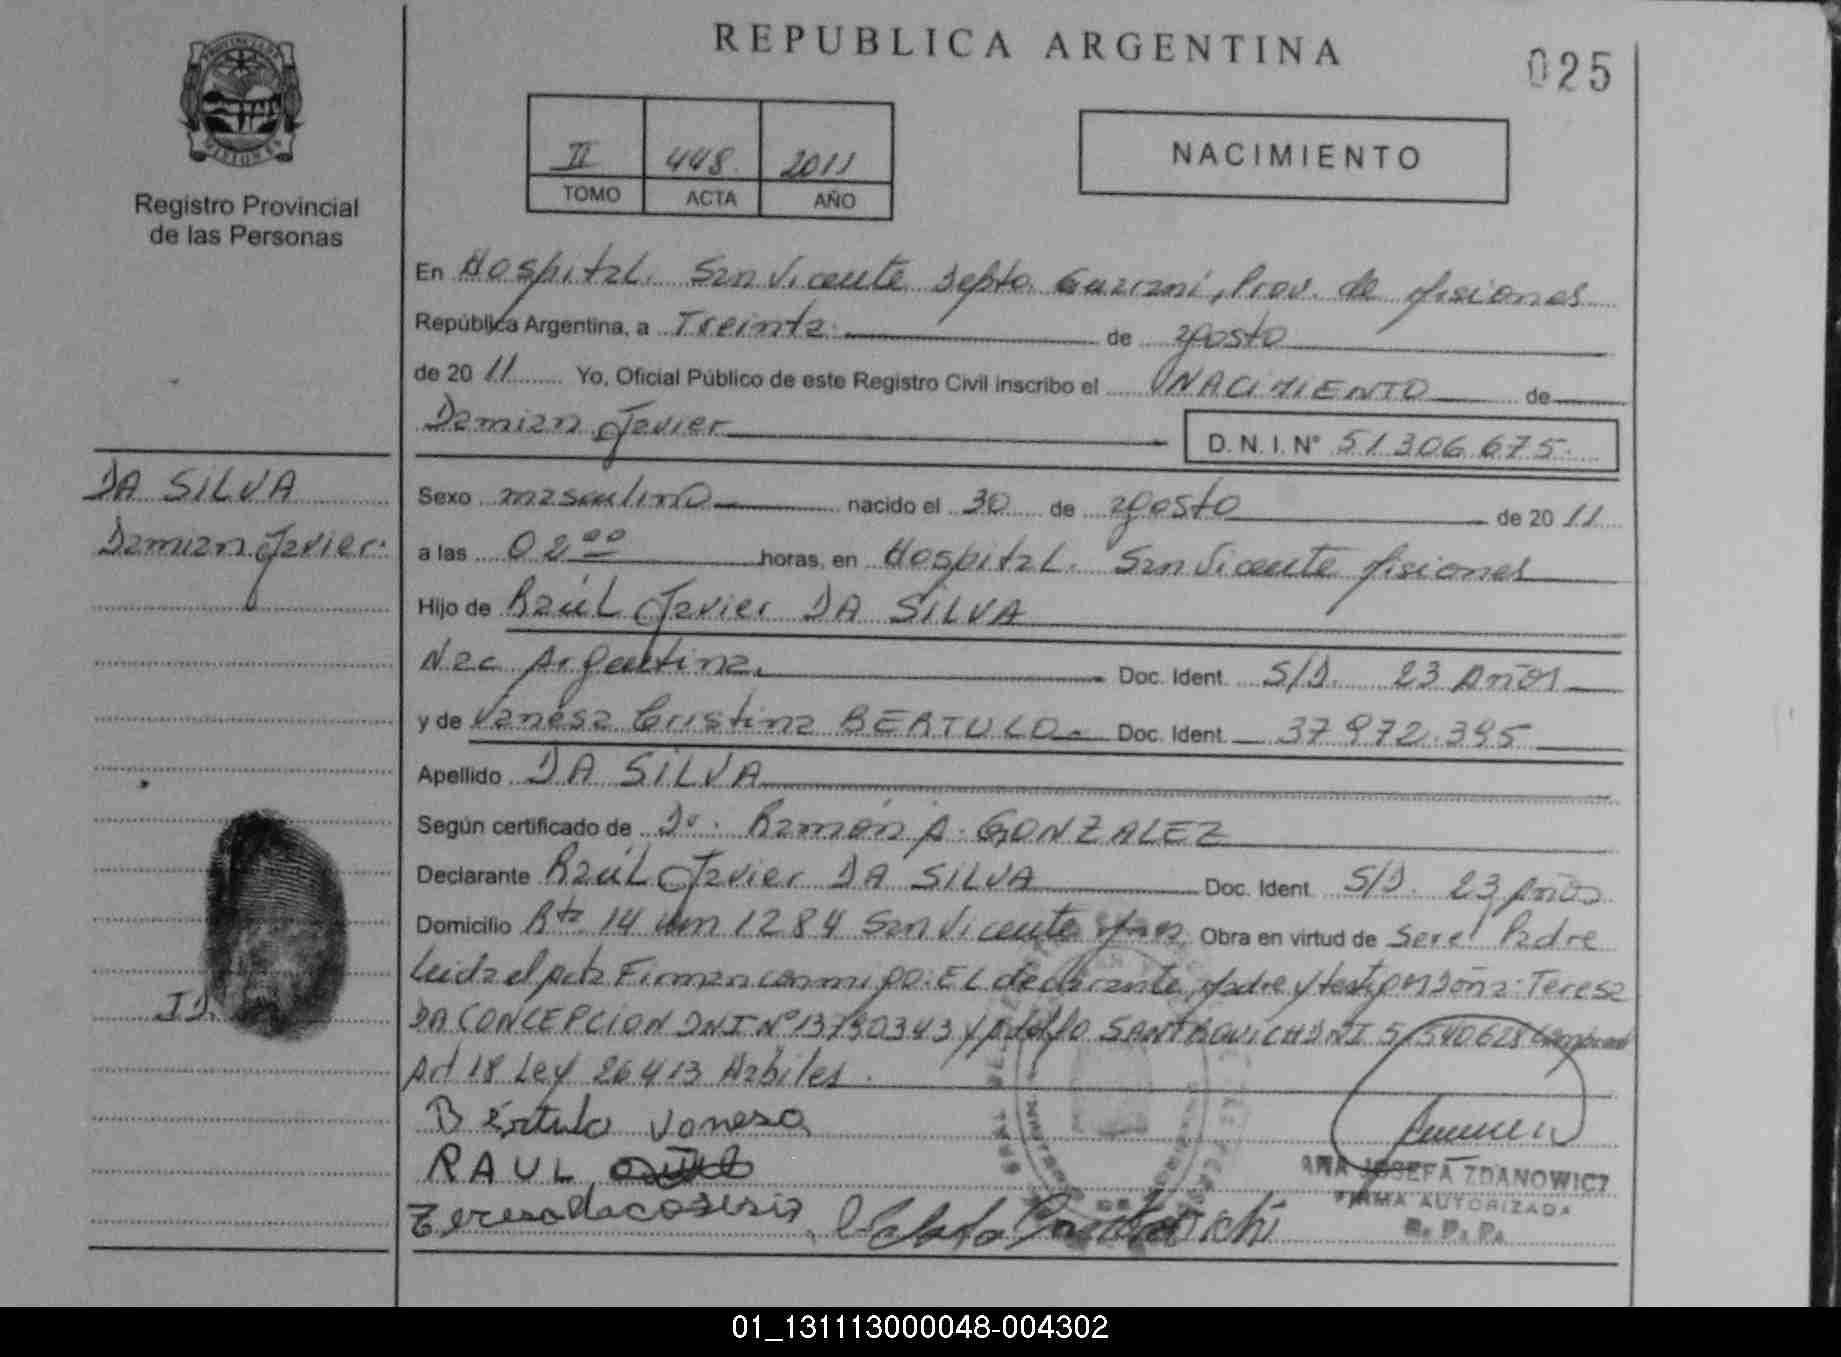 REPUBLICA ARGENTINA
025
PROVINCIA DE MISIONES
Registro Provincial
de las Personas
II 448 2011
TOMO ACTA AÑO
NACIMIENTO
En Hospital San Vicente Depto Guarani, Prov. de Misiones
República Argentina, a Treinta de agosto
de 2011 Yo, Oficial Público de este Registro Civil inscribo el NACIMIENTO de
Damian Javier D. N. I. N° 51.306.675.
DA SILVA
Damian Javier
Sexo masculino nacido el 30 de agosto de 2011
a las 02⁰⁰ horas, en Hospital San Vicente Misiones
Hijo de Raúl Javier DA SILVA
Nac Argentina Doc. Ident. S/D. 23 Años
y de Vanesa Cristina BERTULO Doc. Ident. 37.972.395
Apellido DA SILVA
Según certificado de Dr. Ramón A. GONZALEZ
Declarante Raúl Javier DA SILVA Doc. Ident. S/D. 23 Años
Domicilio Rta 14 km 1284 San Vicente Mnes Obra en virtud de Ser el Padre
Leida el acta Firman conmigo: EL declarante, Madre y testigos Doña: Teresa
DA CONCEPCION DNI N° 13790343 y Adolfo DNI 5.540628
Art 18 Ley 26413 Habiles.
I D.
Bertulo Vanesa
RAUL
Teresa
ANA JOSEFA ZDANOWICZ
FIRMA AUTORIZADA
R. P. P.
01_131113000048-004302